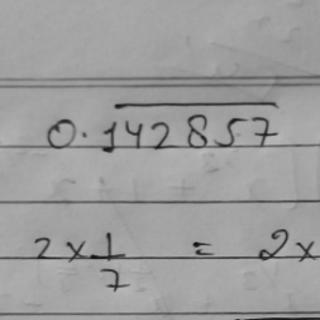 0.1̅4̅2̅8̅5̅7̅
2 × 1/7 = 2 ×